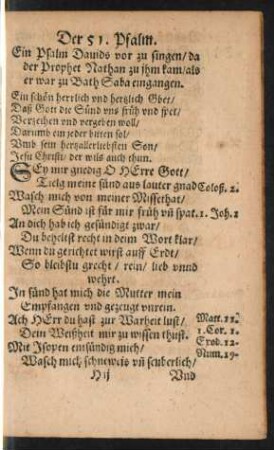 Der 51. Psalm.
Ein Psalm Dauids vor zu singen/ da
der Prophet Nathan zu jhm kam/ als
er war zu Bath Saba eingangen.
Ein schön herrlich vnd hertzlich Gbet/
Daß Gott die Sünd vns früh vnd spet/
Verzeihen vnd vergeben woll/
Darumb ein jeder bitten sol/
Vmb sein hertzallerliebsten Son/
Jesu Christi/ der wils auch thun.
SEy mir gnedig O HErre Gott/
Tielg meine sünd aus lauter gnad Coloß. 2.
Wasch mich von meiner Missethat/
Mein Sünd ist für mir früh vñ spat. 1. Joh. 1
An dich hab ich gesündigt zwar/
Du beheltest recht in deim Wort klar/
Wenn du gerichtet wirst auff Erdt/
So bleibstu grecht/ rein/ lieb vnnd
wehrt.
In sünd hat mich die Mutter mein
Empfangen vnd gezeugt vnrein.
Ach HErr du hast zur Warheit lust/ Matt. 11.
Dein Weißheit mir zu wissen thust. 1. Cor. 1.
Mit Isopen entsündig mich/ Exod. 12.
Wasch mich/ schneweis vñ seuberlich/ Num. 19.
H ij Vnd